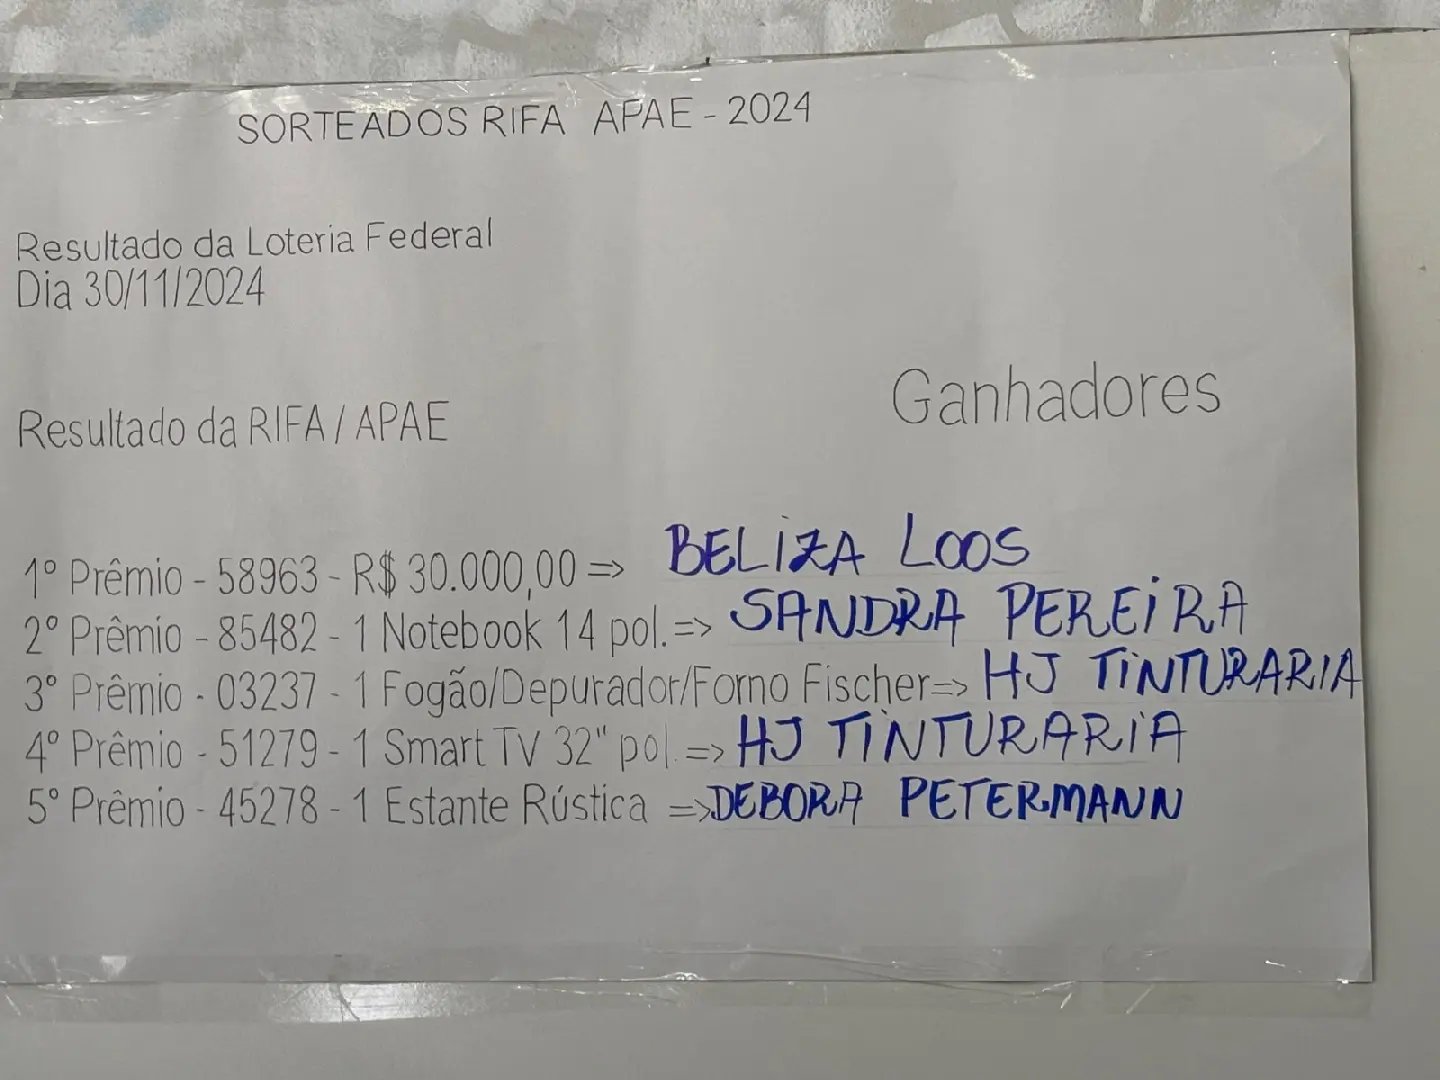 SORTEADOS RIFA APAE - 2024
Resultado da Loteria Federal
Dia 30/11/2024
Ganhadores
Resultado da RIFA / APAE
1º Prêmio - 58963 - R$ 30.000,00 => BELIZA LOOS
2º Prêmio - 85482 - 1 Notebook 14 pol. => SANDRA PEREIRA
3º Prêmio - 03237 - 1 Fogão/Depurador/Forno Fischer => HJ TINTURARIA
4º Prêmio - 51279 - 1 Smart TV 32" pol. => HJ TINTURARIA
5º Prêmio - 45278 - 1 Estante Rústica => DEBORA PETERMANN